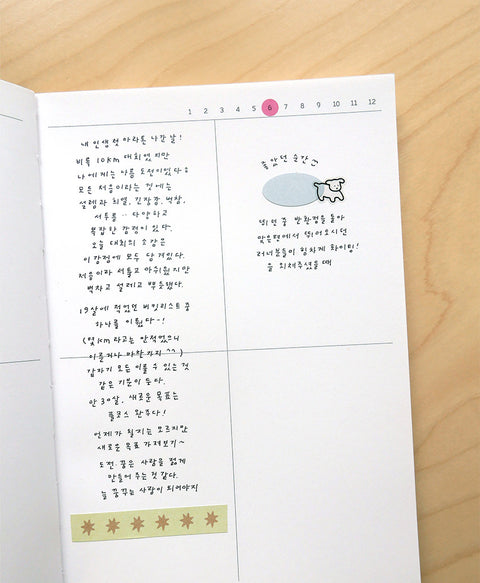 1 2 3 4 5 6 7 8 9 10 11 12
내 인생 첫 마라톤 나간 날!
비록 10km 대회였지만
나에게는 나름 도전이었다?
모든 처음이라는 것에는
설렘과 희열, 긴장감, 벅참,
서투름.. 다양하고
복잡한 감정이 있다.
오늘 대회의 소감은
이 감정에 모두 담겨있다.
처음이라 서툴고 아쉬웠지만
벅차고 설레고 뿌듯했다.
19살에 적었던 버킷리스트 중
하나를 이뤘다~!
(몇km 라고는 안적었으니
이룬거나 마찬가지 ^^)
갑자기 모든 이룰 수 있을 것
같은 기분이 들어.
만 30살, 새로운 목표는
풀코스 완주다!
언제가 될지는 모르지만
새로운 목표 가져보기~
도전·꿈은 사람을 젊게
만들어 주는 것 같다.
늘 꿈꾸는 사람이 되어야지
좋았던 순간
뛰던 중 반환점을 돌아
맞은편에서 뛰어오시던
러너분들이 힘차게 화이팅!
을 외쳐주셨을 때